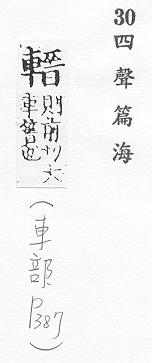 30 四聲篇海
則前切大
車
也
（車部 P387）